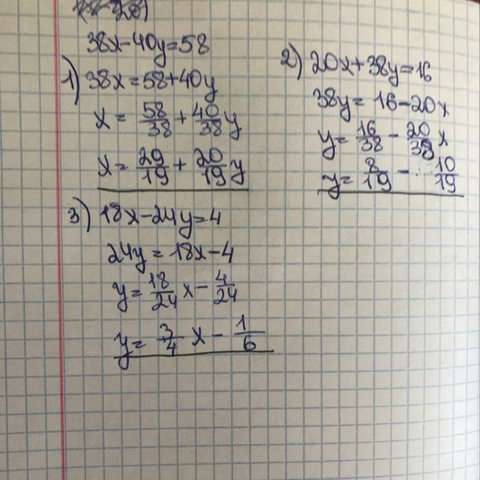 38x-40y=58
1) 38x=58+40y
x = 58/38 + 40/38 y
x = 29/19 + 20/19 y
2) 20x+38y=16
38y = 16-20x
y = 16/38 - 20/38 x
y = 8/19 - 10/19
3) 18x-24y=4
24y = 18x-4
y = 18/24 x - 4/24
y = 3/4 x - 1/6